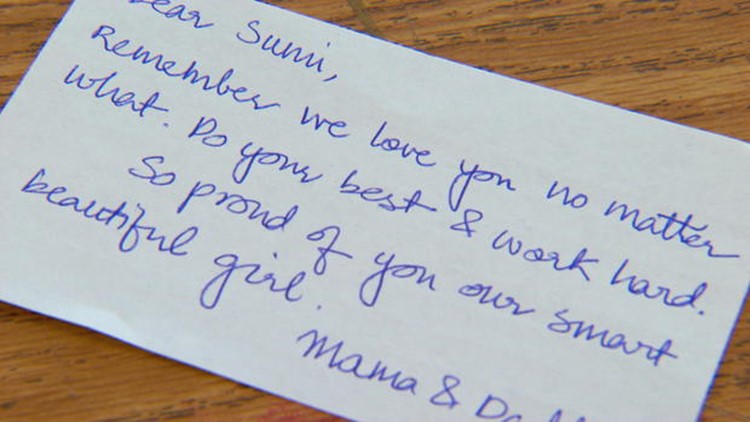 Dear Sumi,
Remember we love you no matter
what. Do your best & work hard.
So proud of you our smart
beautiful girl.
Mama &